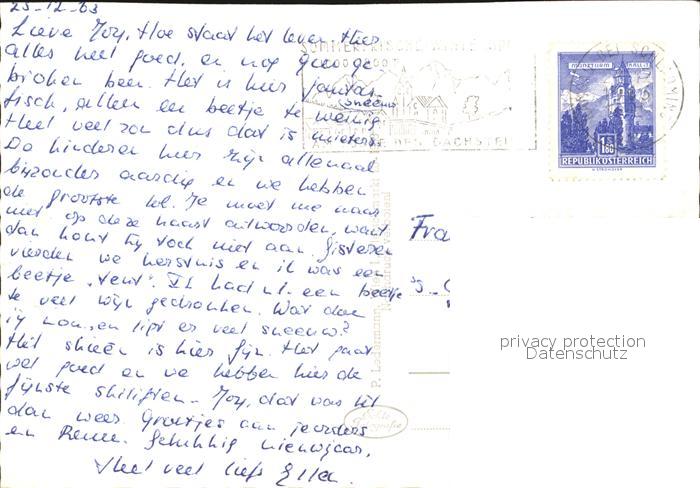 25-12-63
Lieve Joy, Hoe staat het leven. Hier
alles heel goed, en nog geen ge-
broken been. Het is hier fantas-
tisch, alleen een beetje te weinig sneeuw
Heel veel zon dus dat is
De kinderen hier zijn allemaal
bijzonder aardig en we hebben
de grootste lol. Je moet me maar
niet op deze kaart antwoorden, want
dan komt hij toch niet aan. Gisteren
vierden we kerstmis en ik was een
beetje "tent". Ik had n.l. een beetje
te veel wijn gedronken. Wat doe
jij nou, en ligt er veel sneeuw?
Het skieën is hier fijn. Het gaat
wel goed en we hebben hier de
fijnste skiliften. Joy, dat was het
dan weer. Groetjes aan je ouders
en Gelukkig nieuwjaar,
Heel veel liefs Ella.
SOMMERFRISCHE
DACHSTEIN
BEI SCHLADMING
MÜNZTURM HALL I/T
1.80
REPUBLIK ÖSTERREICH
Fra
Echte Fotografie
privacy protection
Datenschutz